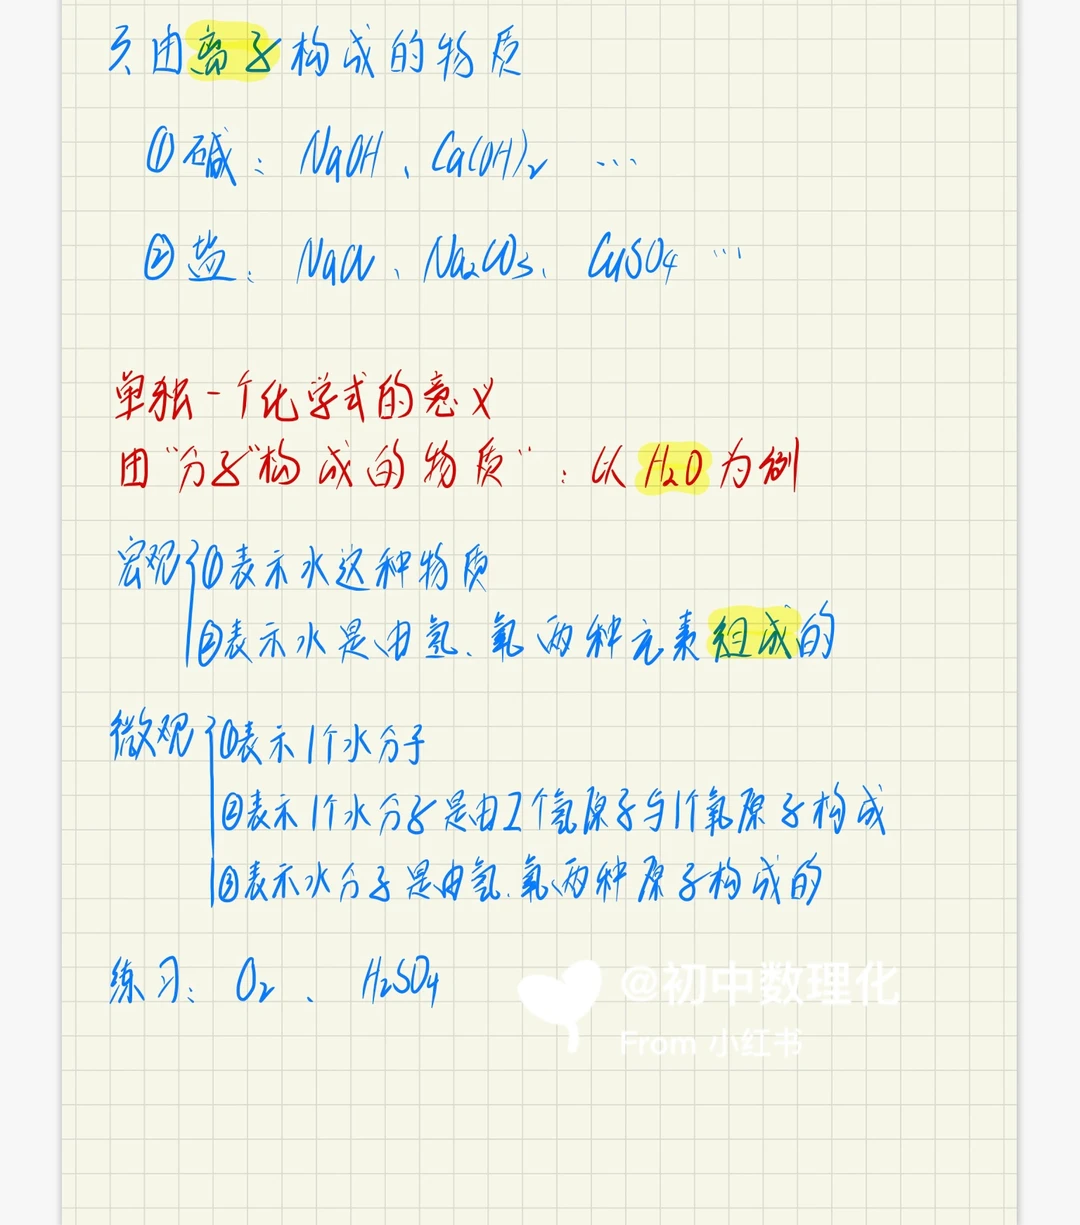 只由离子构成的物质
①碱：NaOH、Ca(OH)₂ …
②盐：NaCl、Na₂CO₃、CuSO₄ …
单独一个化学式的意义
由“分子”构成的物质“：以H₂O为例
宏观{①表示水这种物质
②表示水是由氢、氧两种元素组成的
微观{①表示1个水分子
②表示1个水分子是由2个氢原子与1个氧原子构成
③表示水分子是由氢、氧两种原子构成的
练习：O₂、H₂SO₄
@初中数理化
From 小红书